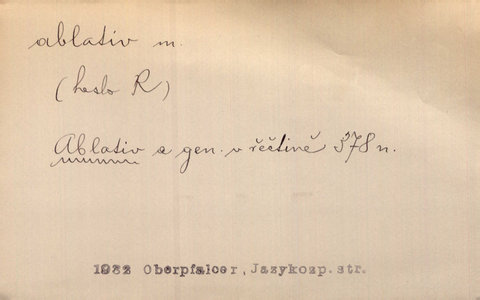 ablativ m.
(heslo R)
Ablativ a gen. v řečtině 378 n.
1932 Oberpfalcer, Jazykozp. str.